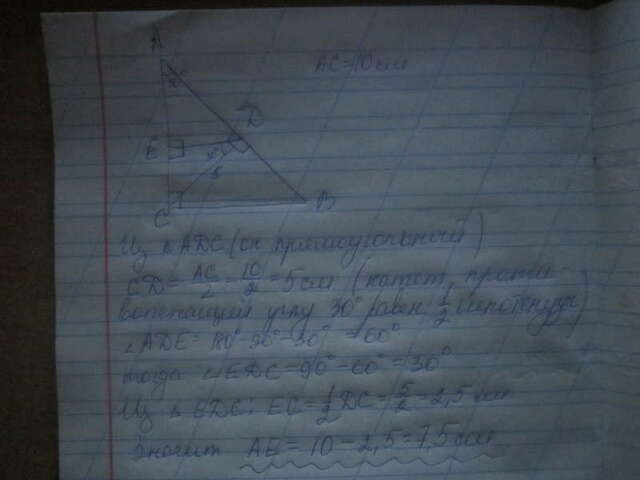 A
30°
AC=10см
D
E
30°
5
C
B
Из ΔADC (он прямоугольный)
CD=AC/2=10/2=5см (катет, проти-
волежащий углу 30° равен 1/2 гипотенузы)
∠ADE=180°-90°-30°=60°
тогда ∠EDC=90°-60°=30°
Из ΔEDC: EC=1/2DC=5/2=2,5см
Значит AE=10-2,5=7,5см